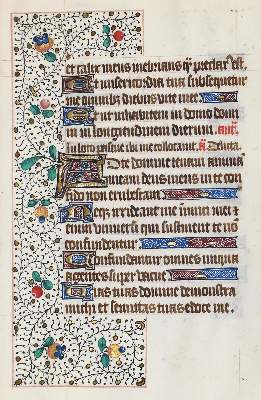 et calix meus inebrians q̄ preclar' est.
Et misericordia tua subsequetur
me omnibz diebus vite mee.
Et ut inhabitem in domo domi
ni in longitudinem dierum. ant'.
In loco pascue ibi me collocavit. a. Delicta.
Ad te domine levavi animā
meam deus meus in te con
fido non erubescam.
Neqz irrideant me inimici mei z
enim universi qui sustinent te nō
confundentur.
Confundantur omnes iniqua
agentes supervacue.
Vias tuas domine demonstra
michi et semitas tuas edoce me.